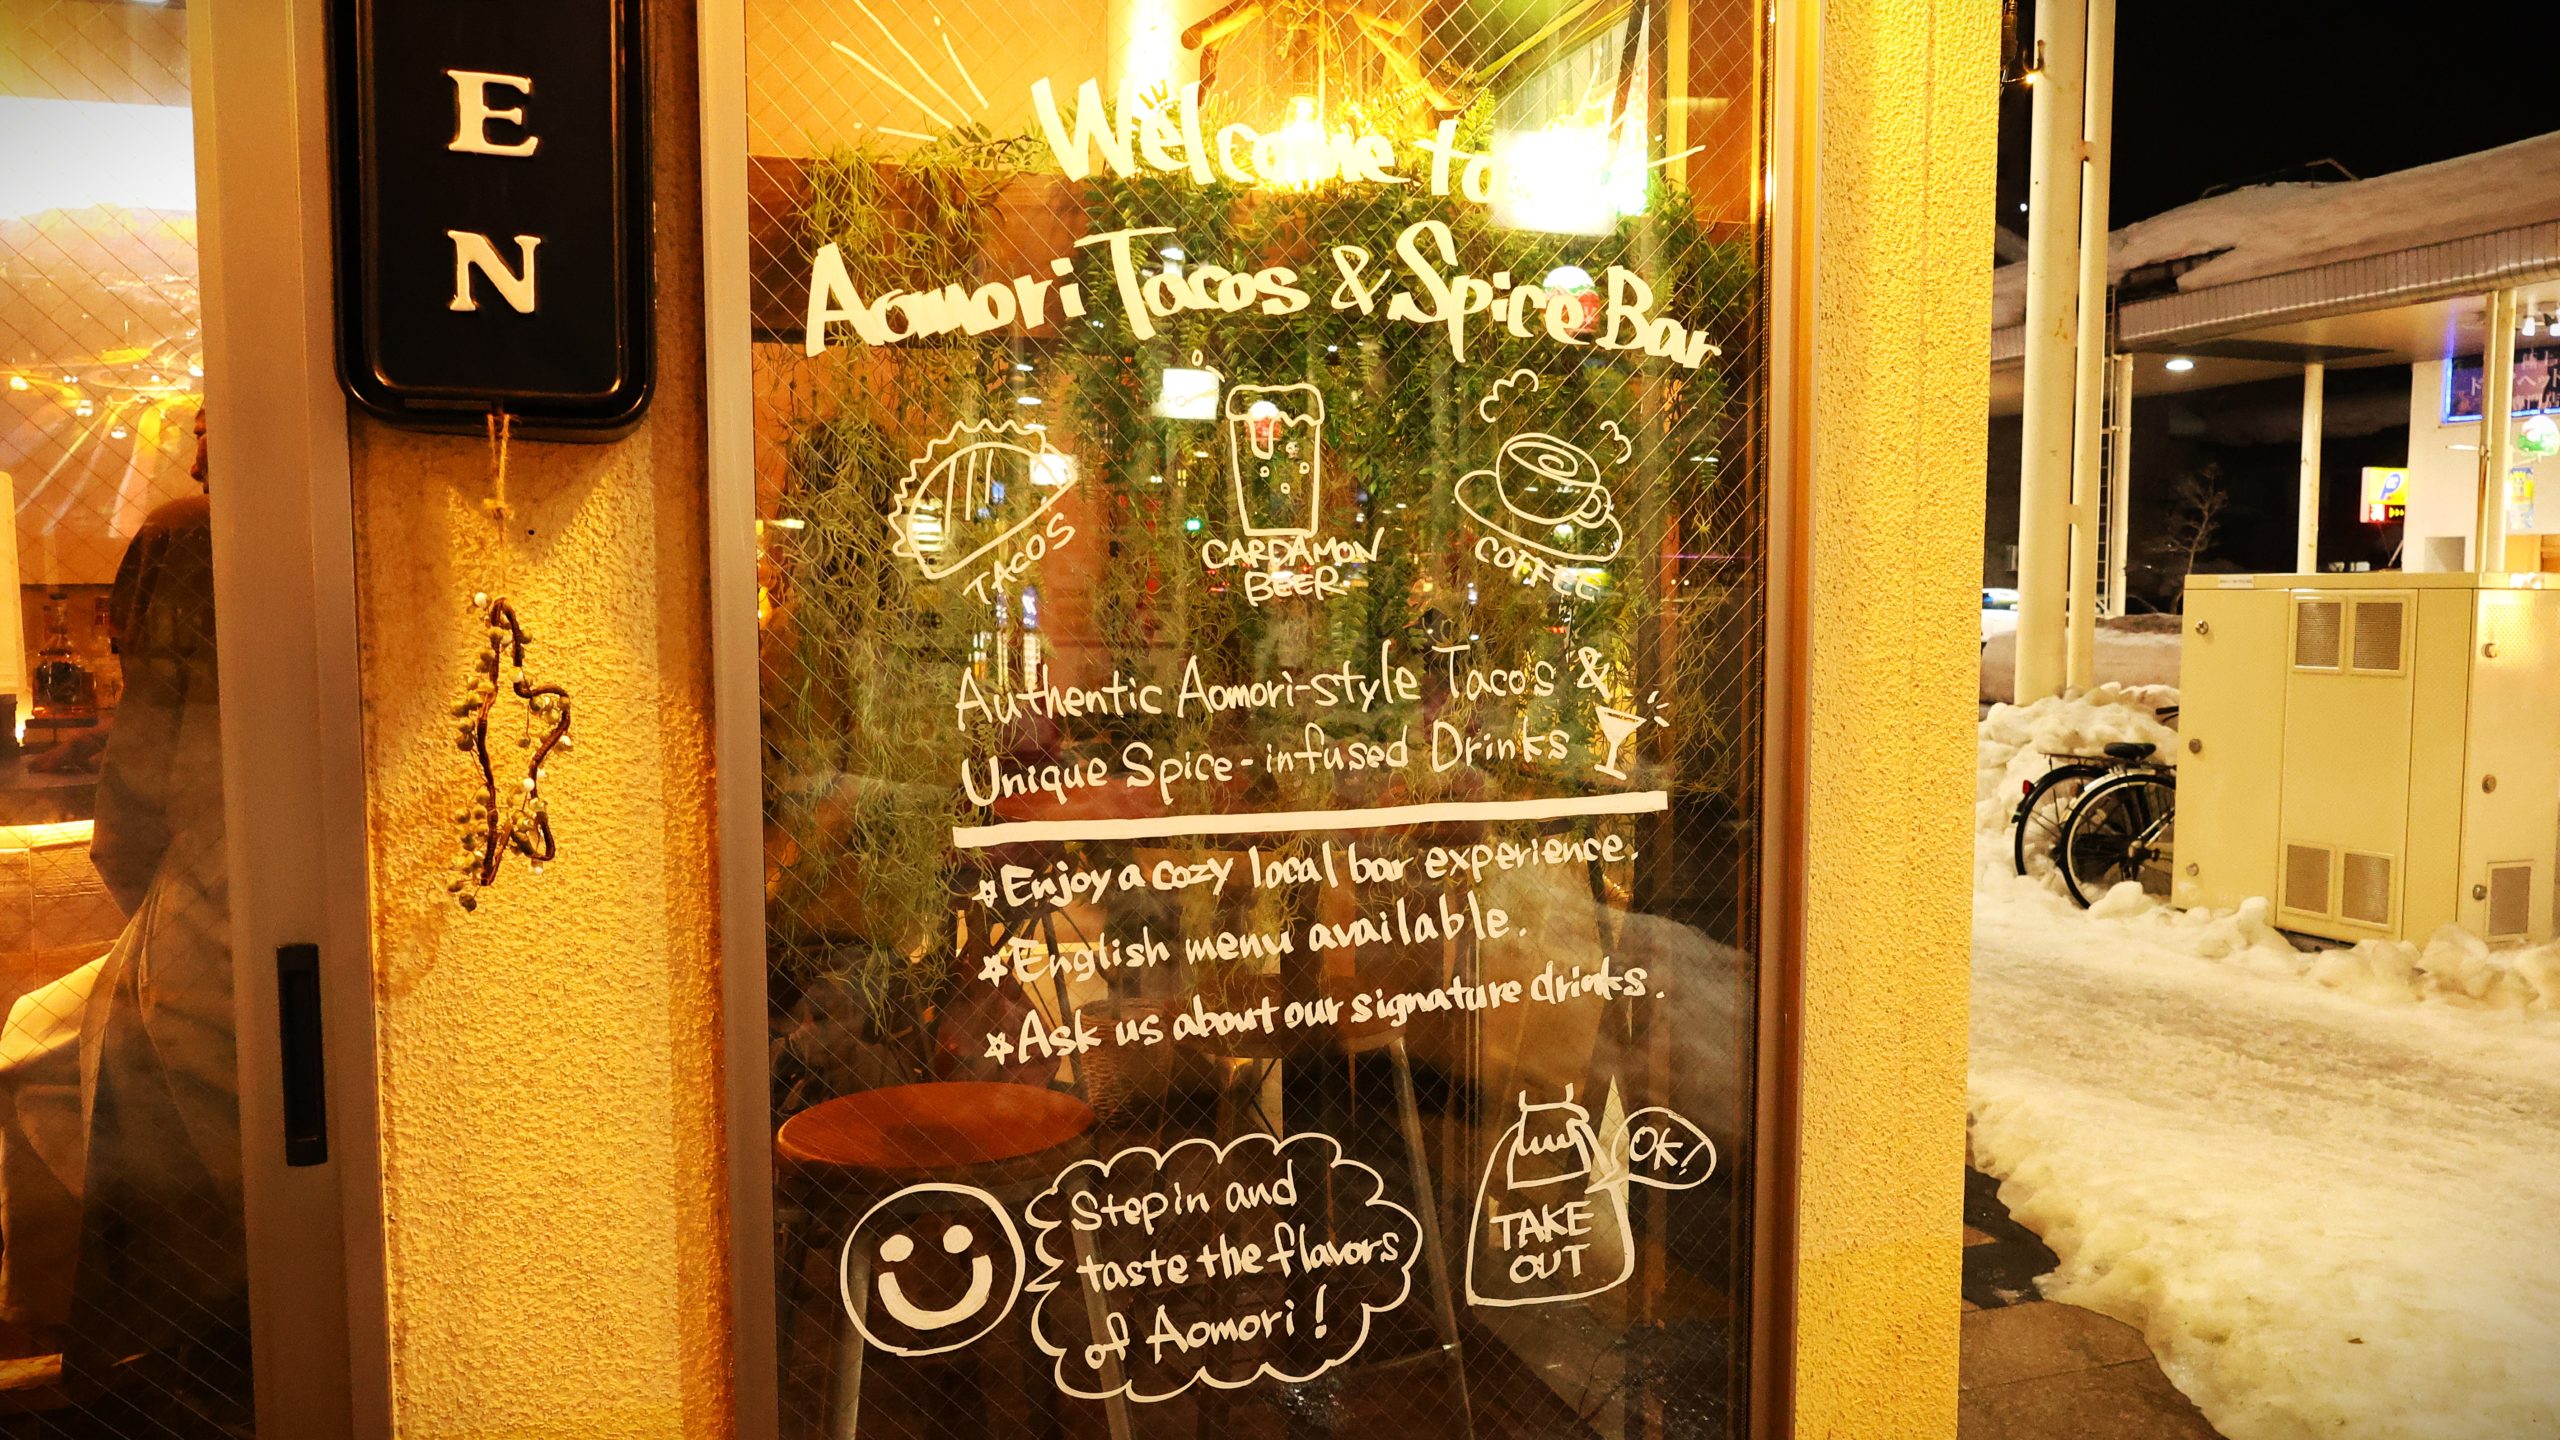 E
N
Welcome to
Aomori Tacos & Spice Bar
TACOS
CARDAMON
BEER
COFFEE
Authentic Aomori-style Tacos &
Unique Spice-infused Drinks
Enjoy a cozy local bar experience.
English menu available.
Ask us about our signature drinks.
Step in and
taste the flavors
of Aomori!
OK!
TAKE
OUT